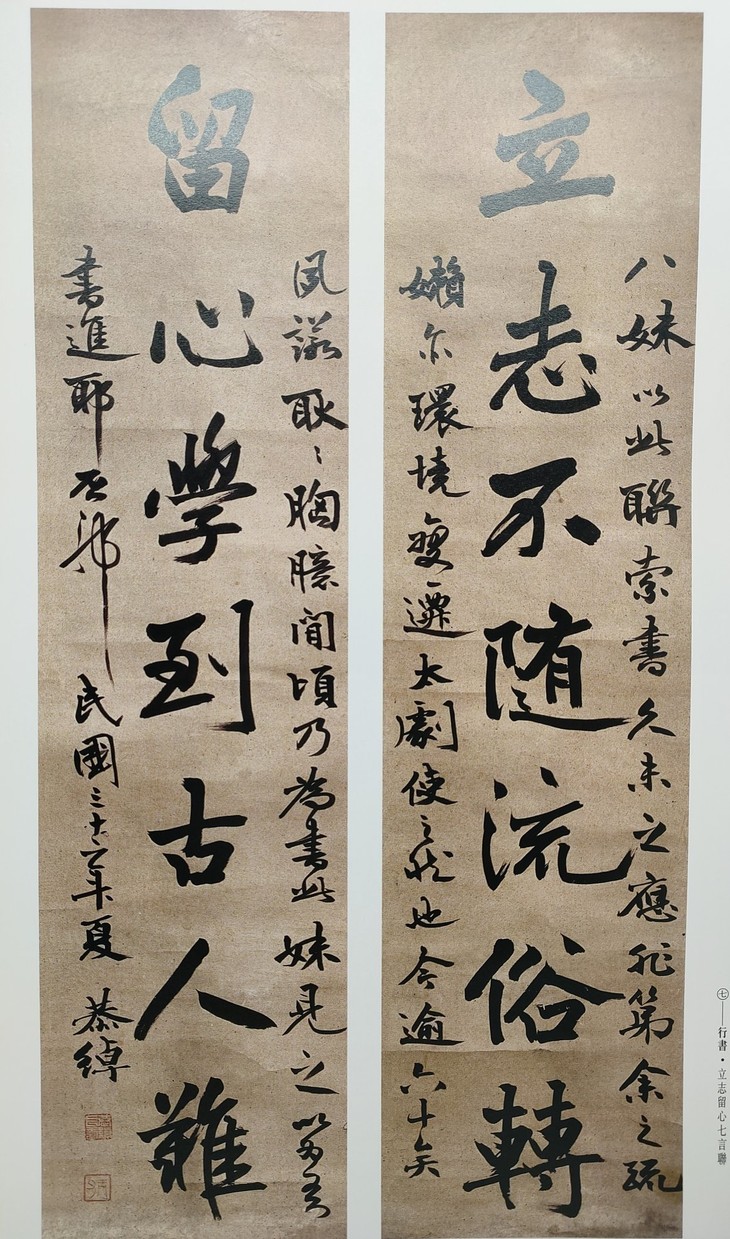 八妹以此聯索書久未之應非第余之疏
立志不随流俗轉
嬾亦環境變遷太劇使之然也今逾六十矣
夙諾耿〻胸臆間頃乃為書此妹見之以為吾
留心學到古人難
書進耶否耶 民國三十六年夏 恭綽
㊆——行書·立志留心七言聯